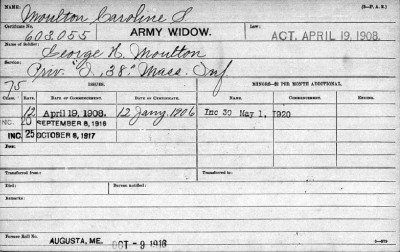 NAME: Moulton Caroline S. (3-P. A. S.)
Certificate No. 603,055 ARMY WIDOW. Law: ACT. APRIL 19, 1908.
Name of Soldier: George H. Moulton
Service: Priv. "I", 38" Mass. Inf
75 ISSUES. MINORS—$2 PER MONTH ADDITIONAL.
CLASS. RATE. DATE OF COMMENCEMENT. DATE OF CERTIFICATE. NAME. COMMENCEMENT. EXPIRATION.
12 April 19, 1908. 12 Jany. 1906 Inc 30 May 1, 1920
INC. 20 SEPTEMBER 8, 1916
INC. 25 OCTOBER 6, 1917
Fees:
Transferred from: Transferred to:
Died: Bureau notified:
Remarks:
Former Roll No.
AUGUSTA, ME. OCT -9 1916